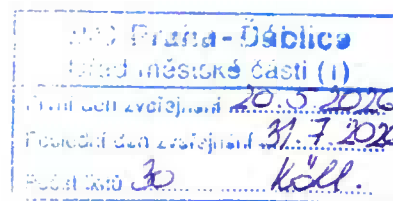 MČ Praha-Ďáblice
Úřad městské části (1)
První den zveřejnění 20.5.2026
Poslední den zveřejnění 31.7.202
Počet listů 30 Köll.